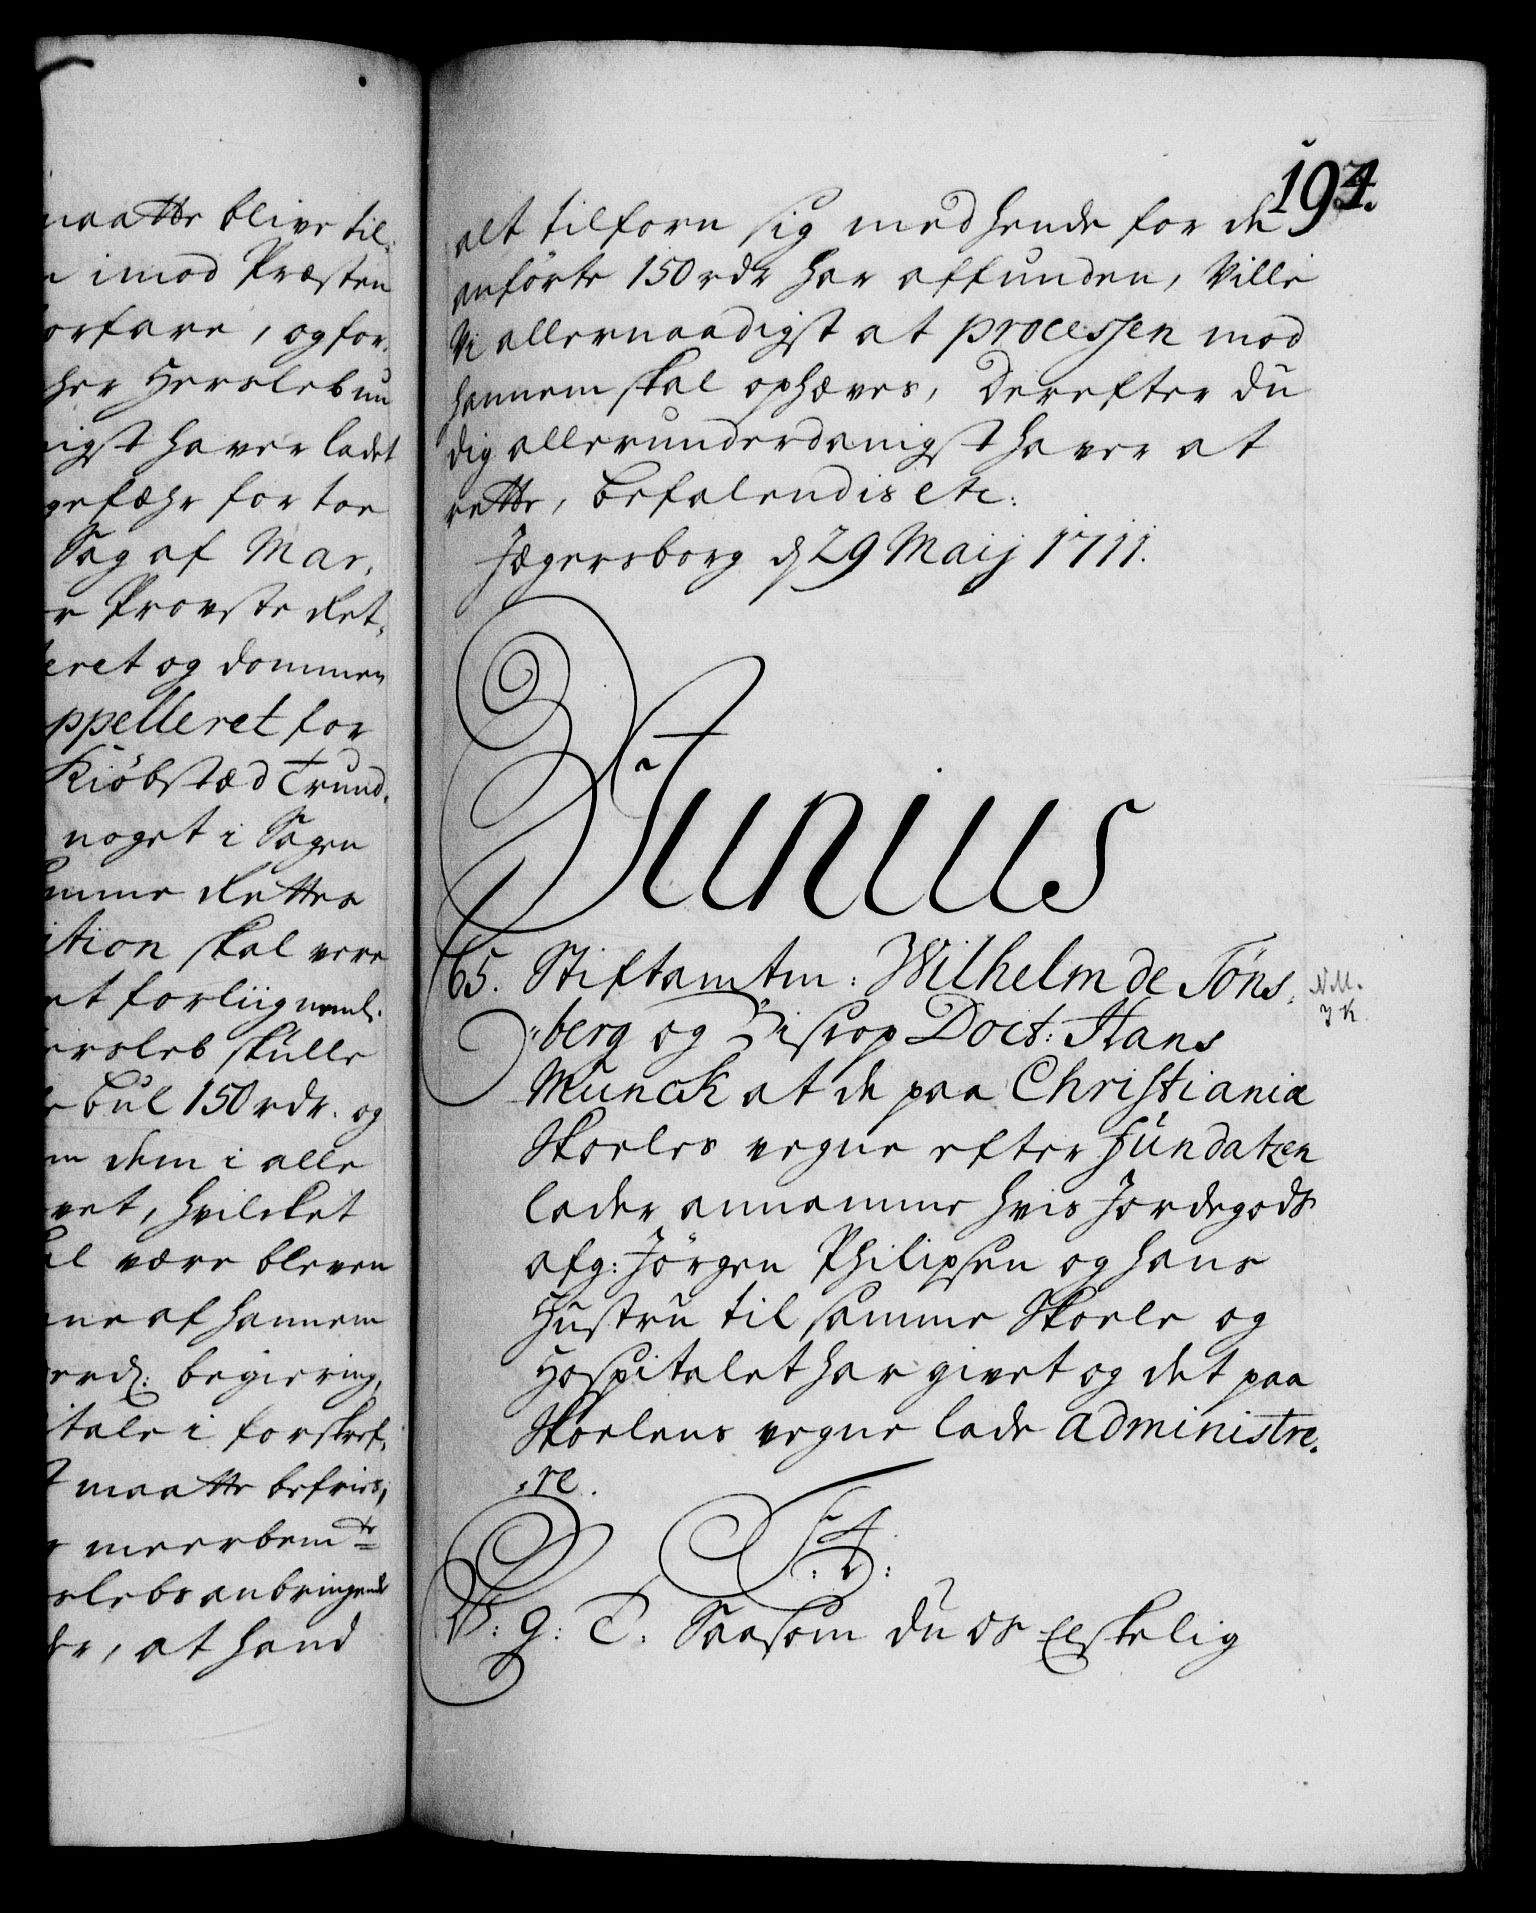 maatte blive til,
imod Præsten
forfare, og for,
her Hersleb nu
nigst haver ladet
gefæhr for toe
Sag af Mar,
Provste Ret,
eret og dommen
ppelleret for
Kiöbstæd Trund,
noget i Sagen
amme Rettes
ition skal være
et forliig neml:
ersleb skulle
bul 150 rdr. og
dem i alle
vet, hvilcket
al være bleven
ne af hannem
erd: begiering,
tale i forskref,
maatte befries,
meerbemte
slebs anbringende
at hand
194.
alt tilforn sig med hende for de
anförte 150 rdr har affunden, Ville
Vi allernaadigst at processen mod
hannem skal ophæves, Derefter du
dig allerunderdanigst haver at
rette, Befalendis etc:
Jægersborg d 29 Maij 1711.
Junius
65. Stiftamtm: Wilhelm de Töns,
berg og Biscop Doct: Hans
Munck at de paa Christiania
Skoeles vegne efter Fundatzen
lader annamme hvis Jordegods
afg: Jörgen Philipsen og hans
Hustru til samme Skoele og
Hospitalet har givet og det paa
Skoelens vegne lade administre,
re.
F. 4.
V: g: T: Saasom du os Elskelig
N.M.
J K.